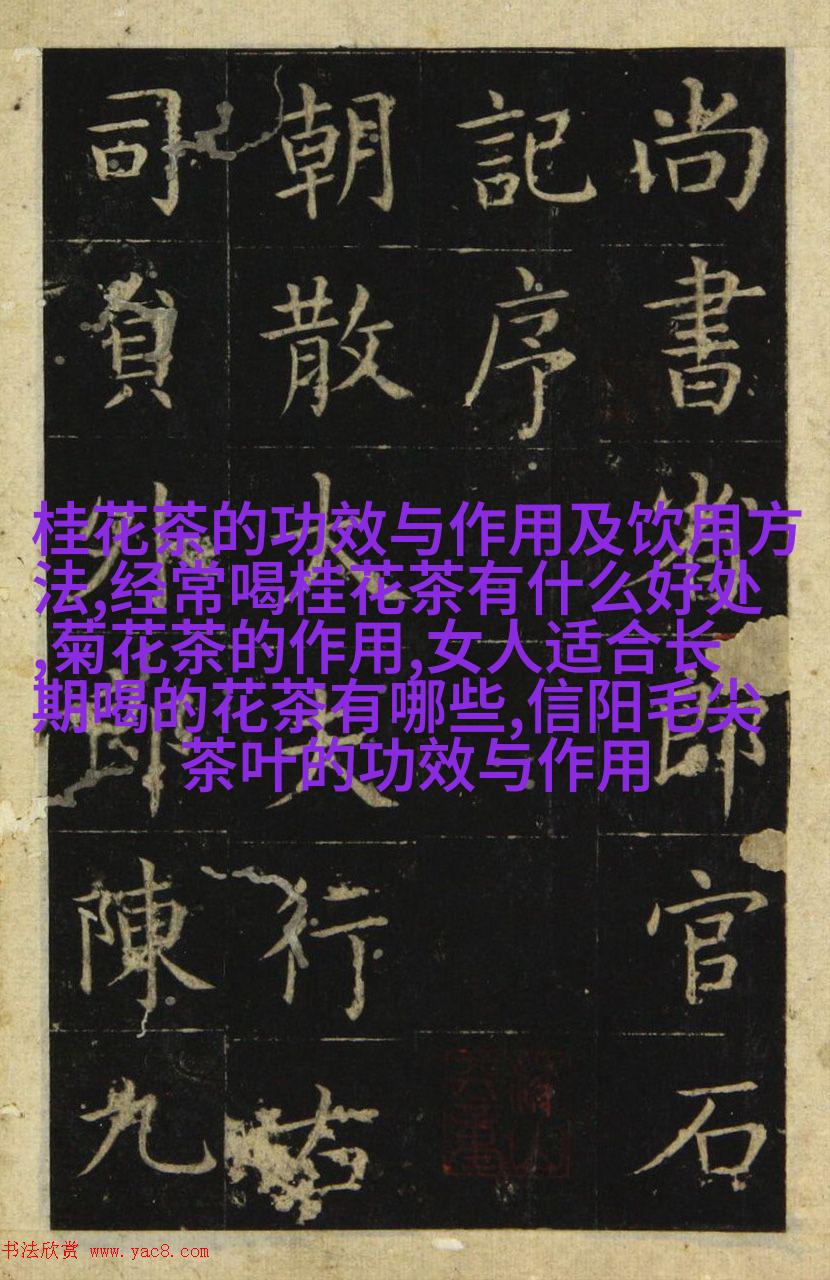 尚書省郎官石
記序
朝散大夫行右
司貟外郎陳九
桂花茶的功效与作用及饮用方
法,经常喝桂花茶有什么好处
,菊花茶的作用,女人适合长
期喝的花茶有哪些,信阳毛尖
茶叶的功效与作用
书法欣赏 www.yac8.com